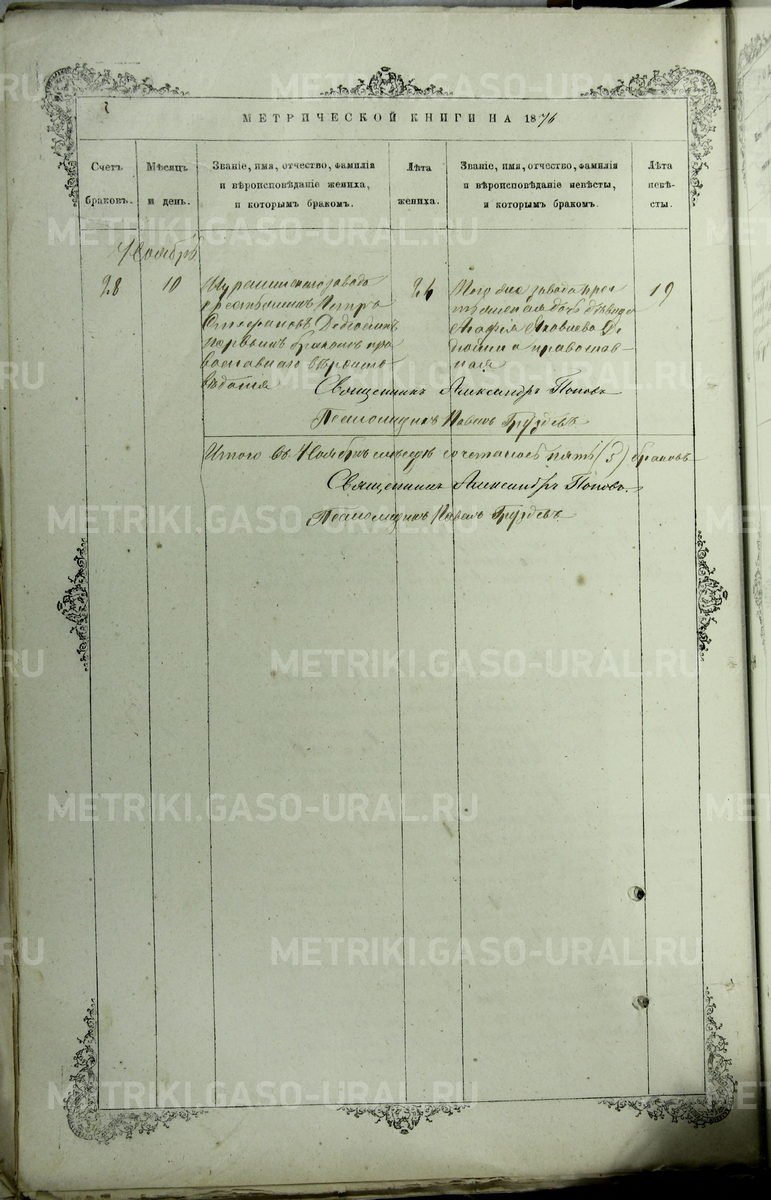 МЕТРИЧЕСКОЙ КНИГИ НА 1876
Счетъ браковъ.
Мѣсяцъ и день.
Званіе, имя, отчество, фамилія и вѣроисповѣданіе жениха, и которымъ бракомъ.
Лѣта жениха.
Званіе, имя, отчество, фамилія и вѣроисповѣданіе невѣсты, и которымъ бракомъ.
Лѣта невѣсты.
Ноябрь
28
10
завода
крестьянинъ Петръ
Стефановъ
первымъ бракомъ пра
вославнаго вѣроиспо
вѣданія
24
Того же завода крес
дочь дѣвица
Агафья Яковлева
православ
ная
19
Священникъ Александръ Поповъ
Псаломщикъ Павелъ Груздевъ
Итого въ Ноябрѣ мѣсяцѣ сочеталось пять (5) браковъ
Священникъ Александръ Поповъ.
Псаломщикъ Павелъ Груздевъ
METRIKI.GASO-URAL.RU